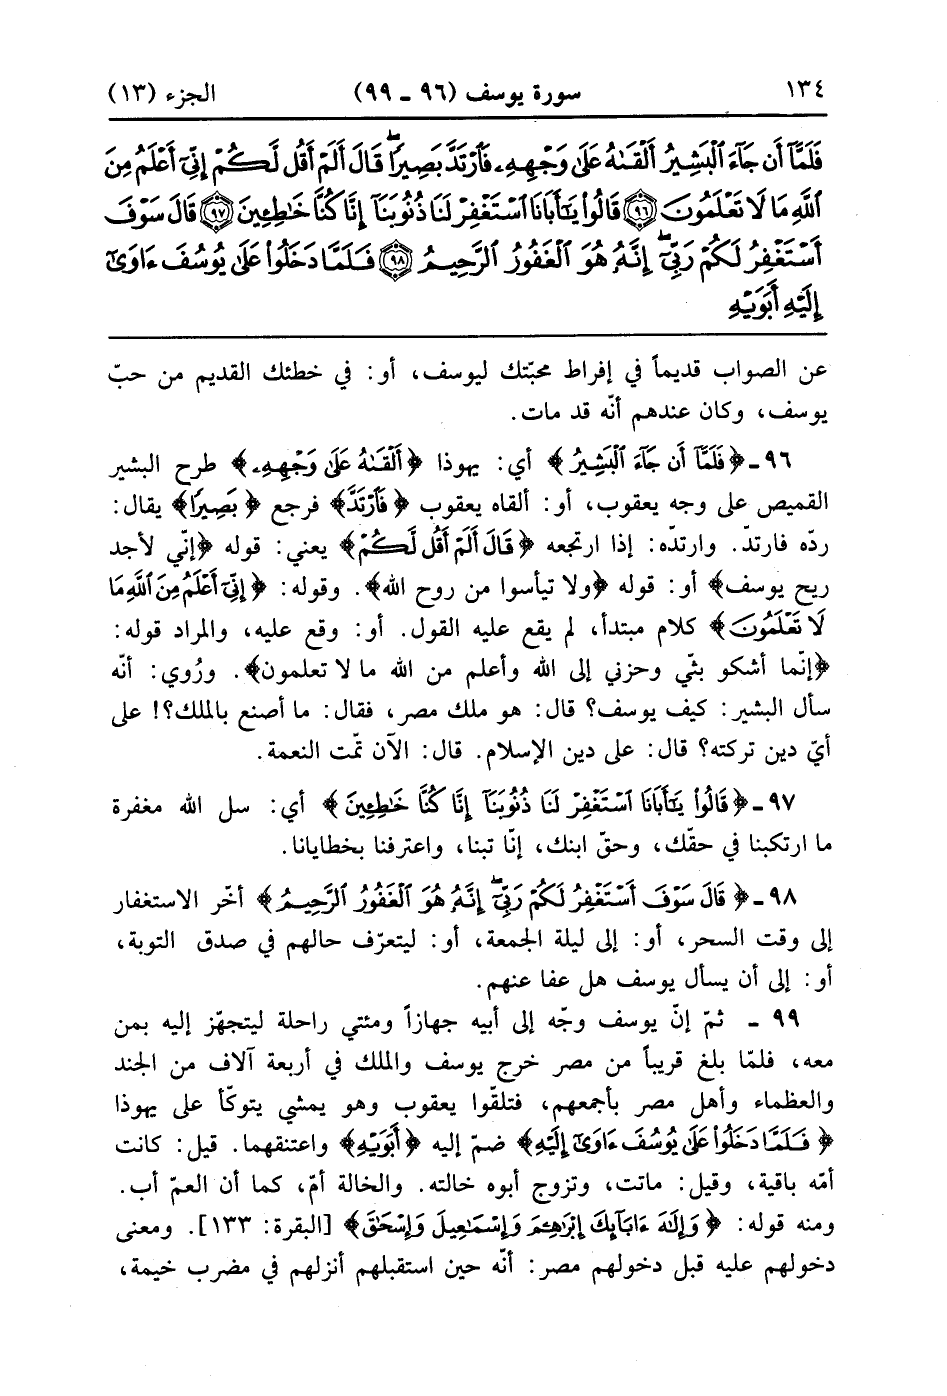 ١٣٤ سورة يوسف (٩٦ ـ ٩٩) الجزء (١٣)
فَلَمَّآ أَن جَآءَ ٱلْبَشِيرُ أَلْقَىٰهُ عَلَىٰ وَجْهِهِۦ فَٱرْتَدَّ بَصِيرًاۖ قَالَ أَلَمْ أَقُل لَّكُمْ إِنِّىٓ أَعْلَمُ مِنَ
ٱللَّهِ مَا لَا تَعْلَمُونَ ٩٦ قَالُوا۟ يَـٰٓأَبَانَا ٱسْتَغْفِرْ لَنَا ذُنُوبَنَآ إِنَّا كُنَّا خَـٰطِـِٔينَ ٩٧ قَالَ سَوْفَ
أَسْتَغْفِرُ لَكُمْ رَبِّىٓۖ إِنَّهُۥ هُوَ ٱلْغَفُورُ ٱلرَّحِيمُ ٩٨ فَلَمَّا دَخَلُوا۟ عَلَىٰ يُوسُفَ ءَاوَىٰٓ
إِلَيْهِ أَبَوَيْهِ
عن الصواب قديماً في إفراط محبّتك ليوسف، أو: في خطئك القديم من حبّ
يوسف، وكان عندهم أنّه قد مات.
٩٦ ـ ﴿فَلَمَّآ أَن جَآءَ ٱلْبَشِيرُ﴾ أي: يهوذا ﴿أَلْقَىٰهُ عَلَىٰ وَجْهِهِۦ﴾ طرح البشير
القميص على وجه يعقوب، أو: ألقاه يعقوب ﴿فَٱرْتَدَّ﴾ فرجع ﴿بَصِيرًا﴾ يقال:
ردّه فارتدّ. وارتده: إذا ارتجعه ﴿قَالَ أَلَمْ أَقُل لَّكُمْ﴾ يعني: قوله ﴿إنّي لأجد
ريح يوسف﴾ أو: قوله ﴿ولا تيأسوا من روح الله﴾. وقوله: ﴿إِنِّىٓ أَعْلَمُ مِنَ ٱللَّهِ مَا
لَا تَعْلَمُونَ﴾ كلام مبتدأ، لم يقع عليه القول. أو: وقع عليه، والمراد قوله:
﴿إنّما أشكو بثّي وحزني إلى الله وأعلم من الله ما لا تعلمون﴾. ورُوي: أنّه
سأل البشير: كيف يوسف؟ قال: هو ملك مصر، فقال: ما أصنع بالملك؟! على
أيّ دين تركته؟ قال: على دين الإسلام. قال: الآن تمّت النعمة.
٩٧ ـ ﴿قَالُوا۟ يَـٰٓأَبَانَا ٱسْتَغْفِرْ لَنَا ذُنُوبَنَآ إِنَّا كُنَّا خَـٰطِـِٔينَ﴾ أي: سل الله مغفرة
ما ارتكبنا في حقّك، وحقّ ابنك، إنّا تبنا، واعترفنا بخطايانا.
٩٨ ـ ﴿قَالَ سَوْفَ أَسْتَغْفِرُ لَكُمْ رَبِّىٓۖ إِنَّهُۥ هُوَ ٱلْغَفُورُ ٱلرَّحِيمُ﴾ أخّر الاستغفار
إلى وقت السحر، أو: إلى ليلة الجمعة، أو: ليتعرّف حالهم في صدق التوبة،
أو: إلى أن يسأل يوسف هل عفا عنهم.
٩٩ ـ ثمّ إنّ يوسف وجّه إلى أبيه جهازاً ومئتي راحلة ليتجهّز إليه بمن
معه، فلمّا بلغ قريباً من مصر خرج يوسف والملك في أربعة آلاف من الجند
والعظماء وأهل مصر بأجمعهم، فتلقّوا يعقوب وهو يمشي يتوكّأ على يهوذا
﴿فَلَمَّا دَخَلُوا۟ عَلَىٰ يُوسُفَ ءَاوَىٰٓ إِلَيْهِ﴾ ضمّ إليه ﴿أَبَوَيْهِ﴾ واعتنقهما. قيل: كانت
أمّه باقية، وقيل: ماتت، وتزوج أبوه خالته. والخالة أمّ، كما أن العمّ أب.
ومنه قوله: ﴿وَإِلَـٰهَ ءَابَآئِكَ إِبْرَٰهِـۧمَ وَإِسْمَـٰعِيلَ وَإِسْحَـٰقَ﴾ [البقرة: ١٣٣]. ومعنى
دخولهم عليه قبل دخولهم مصر: أنّه حين استقبلهم أنزلهم في مضرب خيمة،